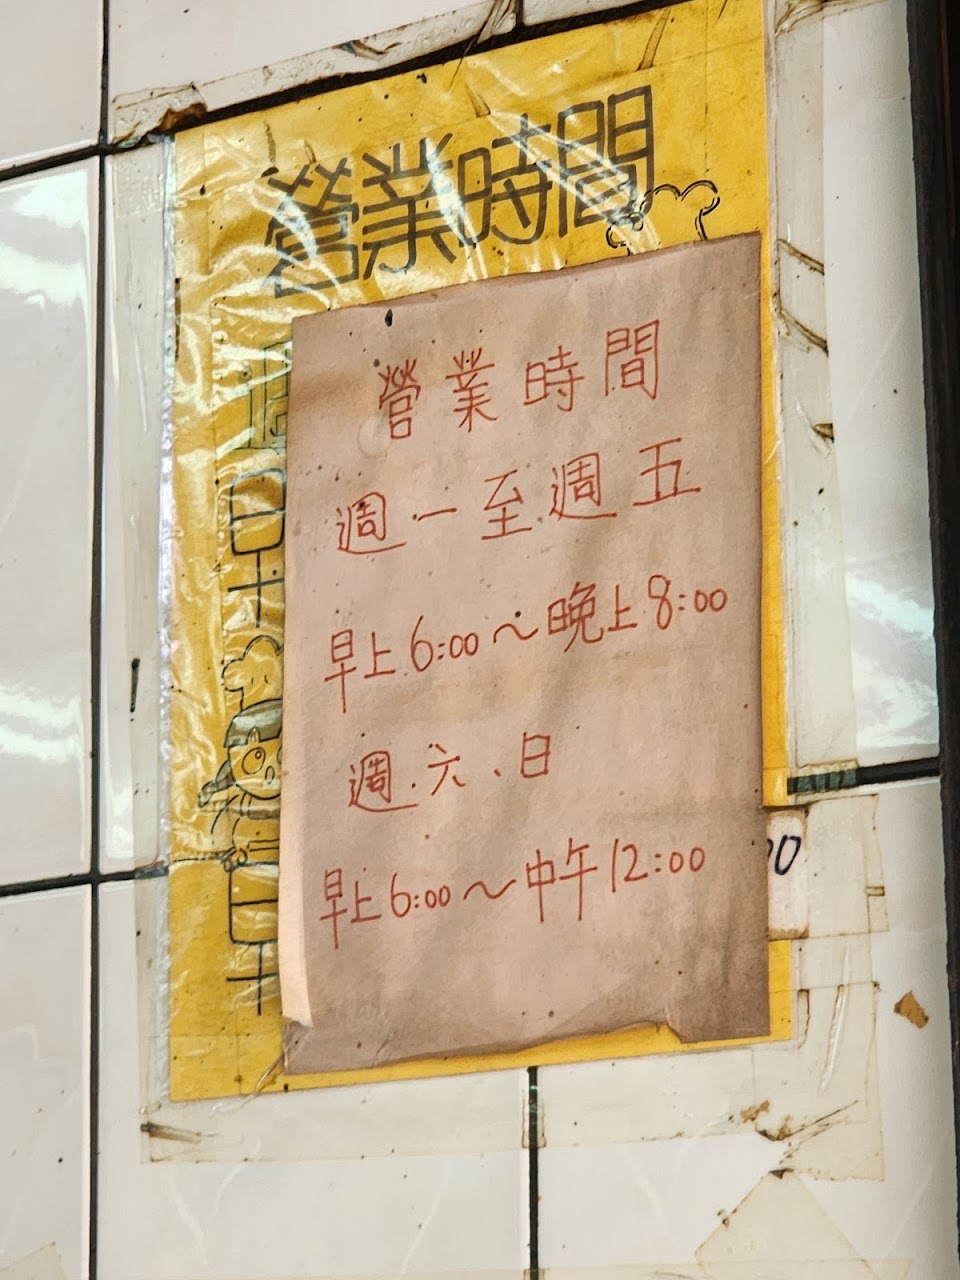 營業時間
營業時間
週一至週五
早上6:00～晚上8:00
週六、日
早上6:00～中午12:00